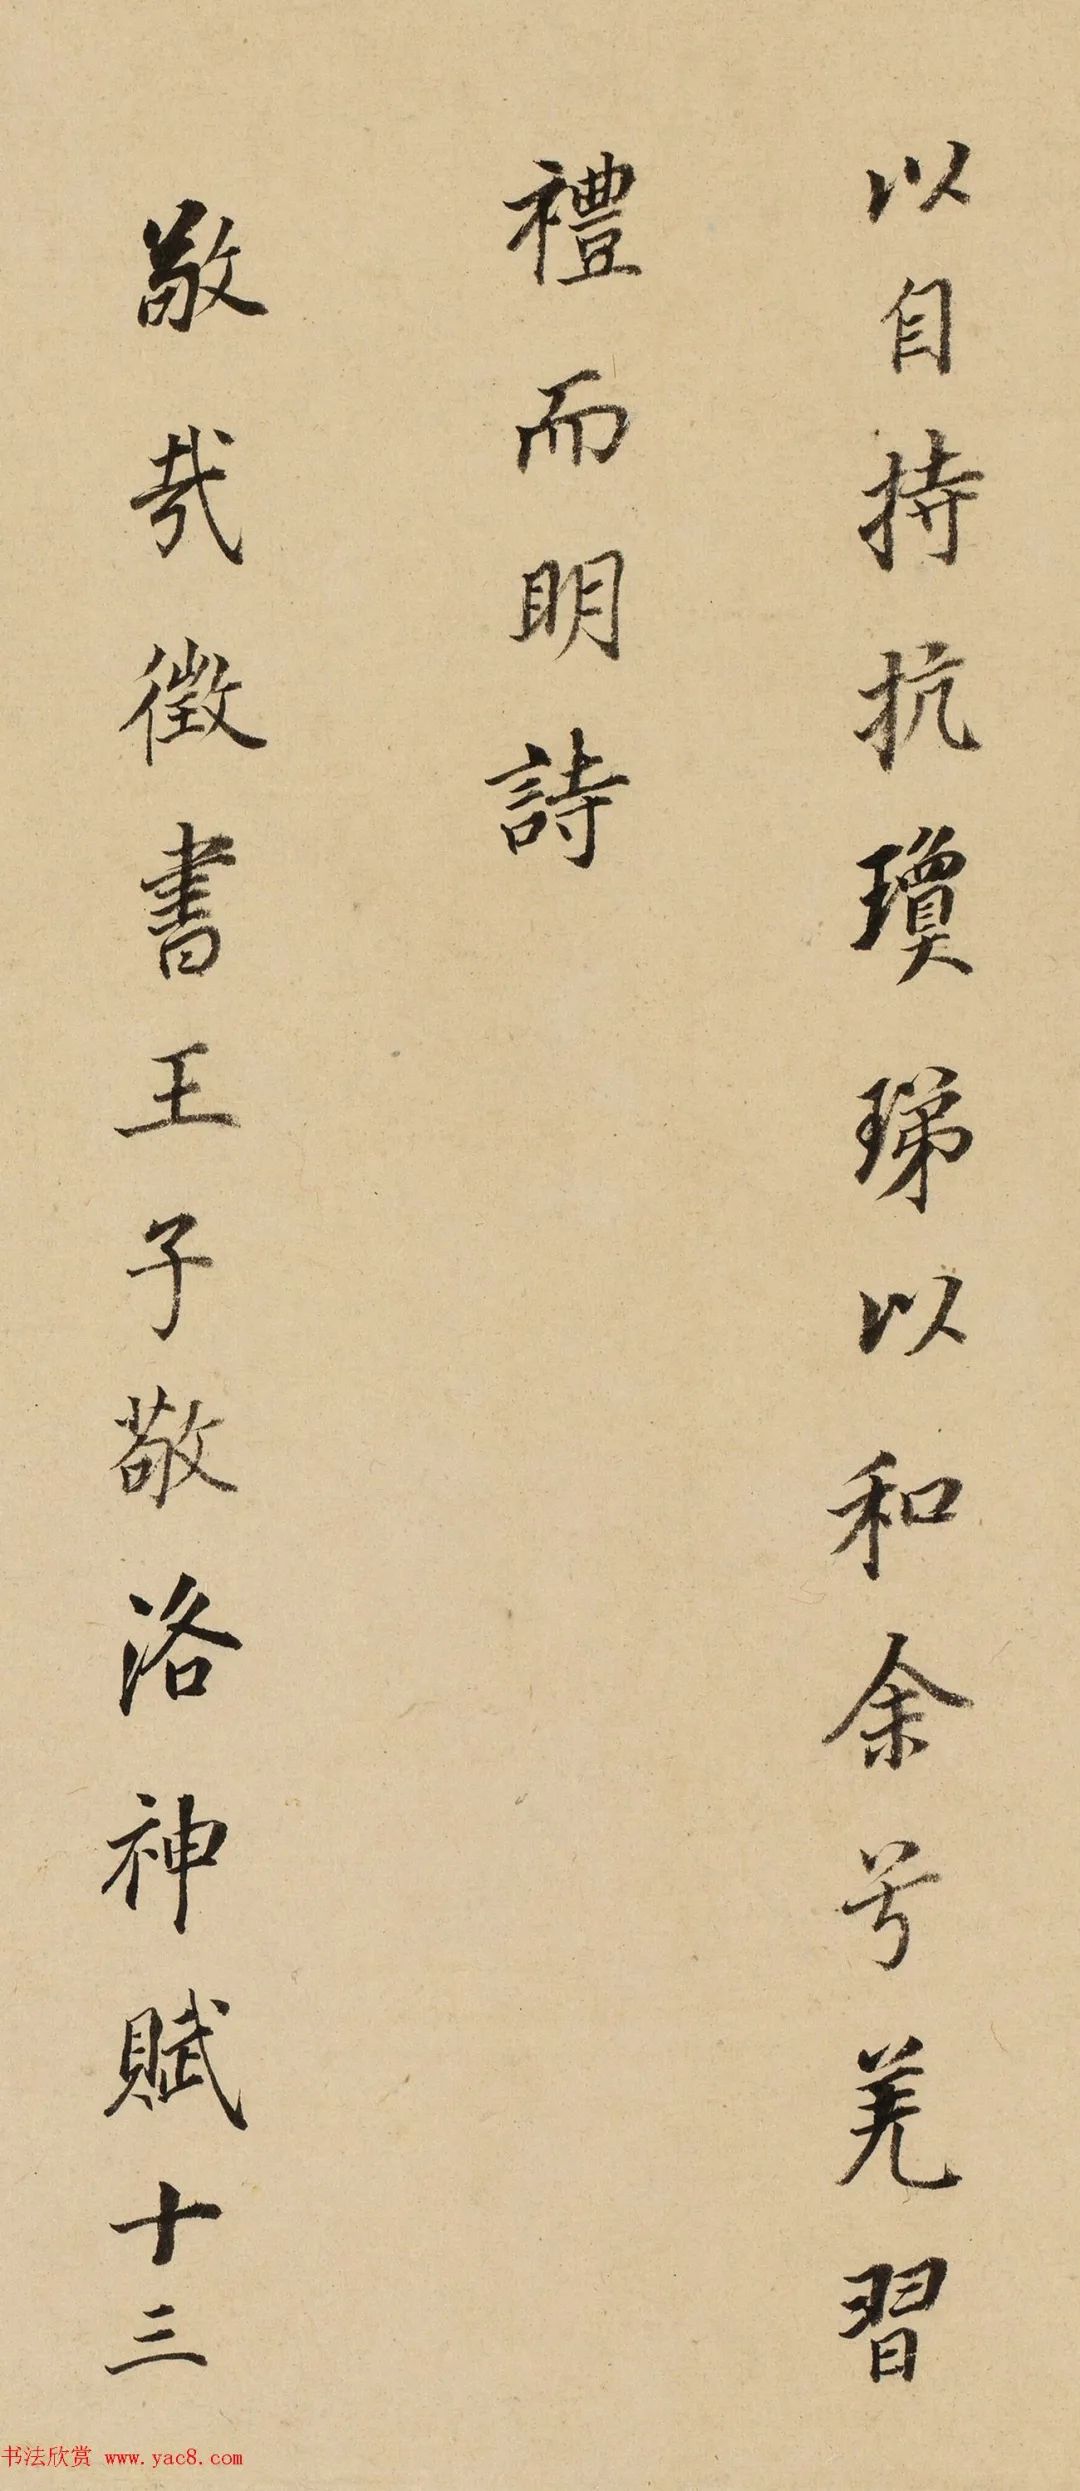 以自持抗瓊珶以和余兮羌習
禮而明詩
敬哉徵書王子敬洛神賦十三
书法欣赏 www.yac8.com